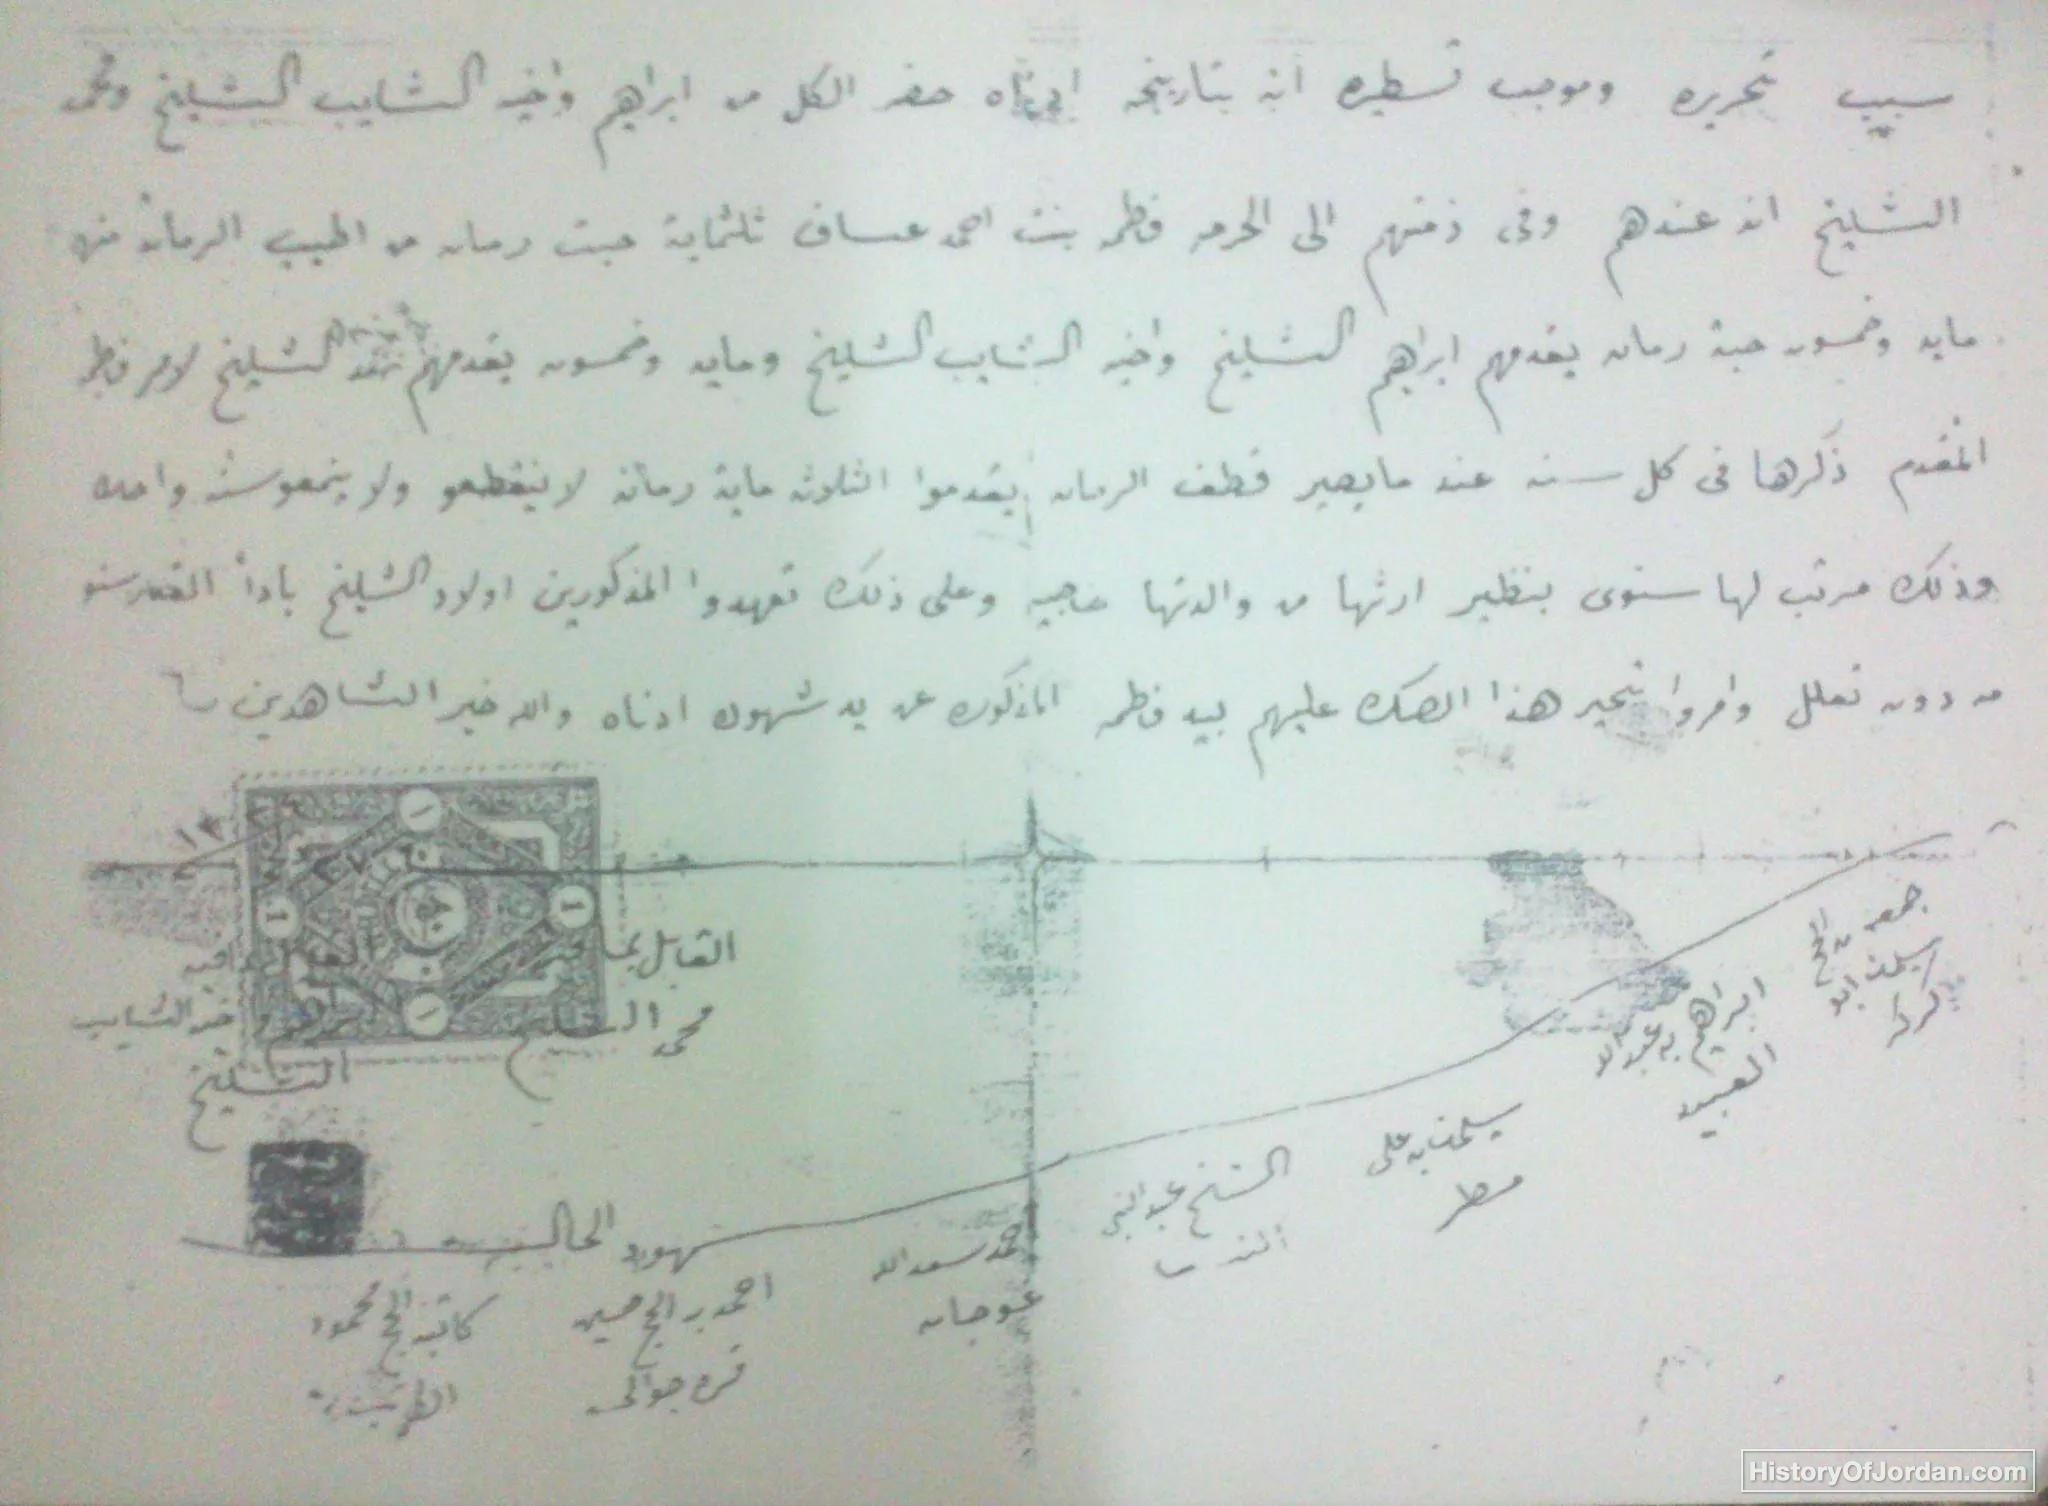 سبب تحريره وموجب تسطيره انه بتاريخه ادناه حضر الكل من ابراهيم واخيه الشايب الشليخ ومحمد
الشليخ ان عندهم وفي ذمتهم الى الحرمه فطمه بنت احمد عساف ثلثماية حبت رمان من اطيب الرمان منه
مايه وخمسون حبة رمان يقدمهم ابراهيم الشليخ واخيه الشايب الشليخ ومايه وخمسون يقدمهم الشليخ فطمه
المقدم ذكرها في كل سنه عند ما يصير قطف الرمان يقدموا الثلاوثه ماية رمانة لا ينقطعو ولا واحده
وذلك مرتب لها سنوي بنظير ارثها من والدتها عاجيه وعلى ذلك تعهدوا المذكورين اولاد الشليخ بادأ القدر سنو
من دون تعلل وامروا بتحير هذا الصك عليهم بيد فطمه المذكوره عن يد شهوده ادناه والله خير الشاهدين
القابل بما فيه
محمد الشليخ
القابل بما فيه
ابراهيم واخيه الشايب
الشليخ
شهود الحال
جمعه بن الحج
سليمان ابو
كركي
ابراهيم بن عبدالله
العبيد
سليمان بن علي
مطر
الشيخ عبدالنبي
احمد سعدالله
عوجان
احمد بن الحج حسين
قره جوالي
كاتبه الحج محمود
HistoryOfJordan.com